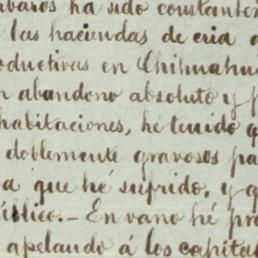 rbaros ha sido constante
las haciendas de cria
oductivas en Chihuahu
n abandono absoluto y p
habitaciones, hé tenido q
doblemente gravosos pa
a que hé sufrido, y q
úblico.- En vano hé pro
apelando á los capita